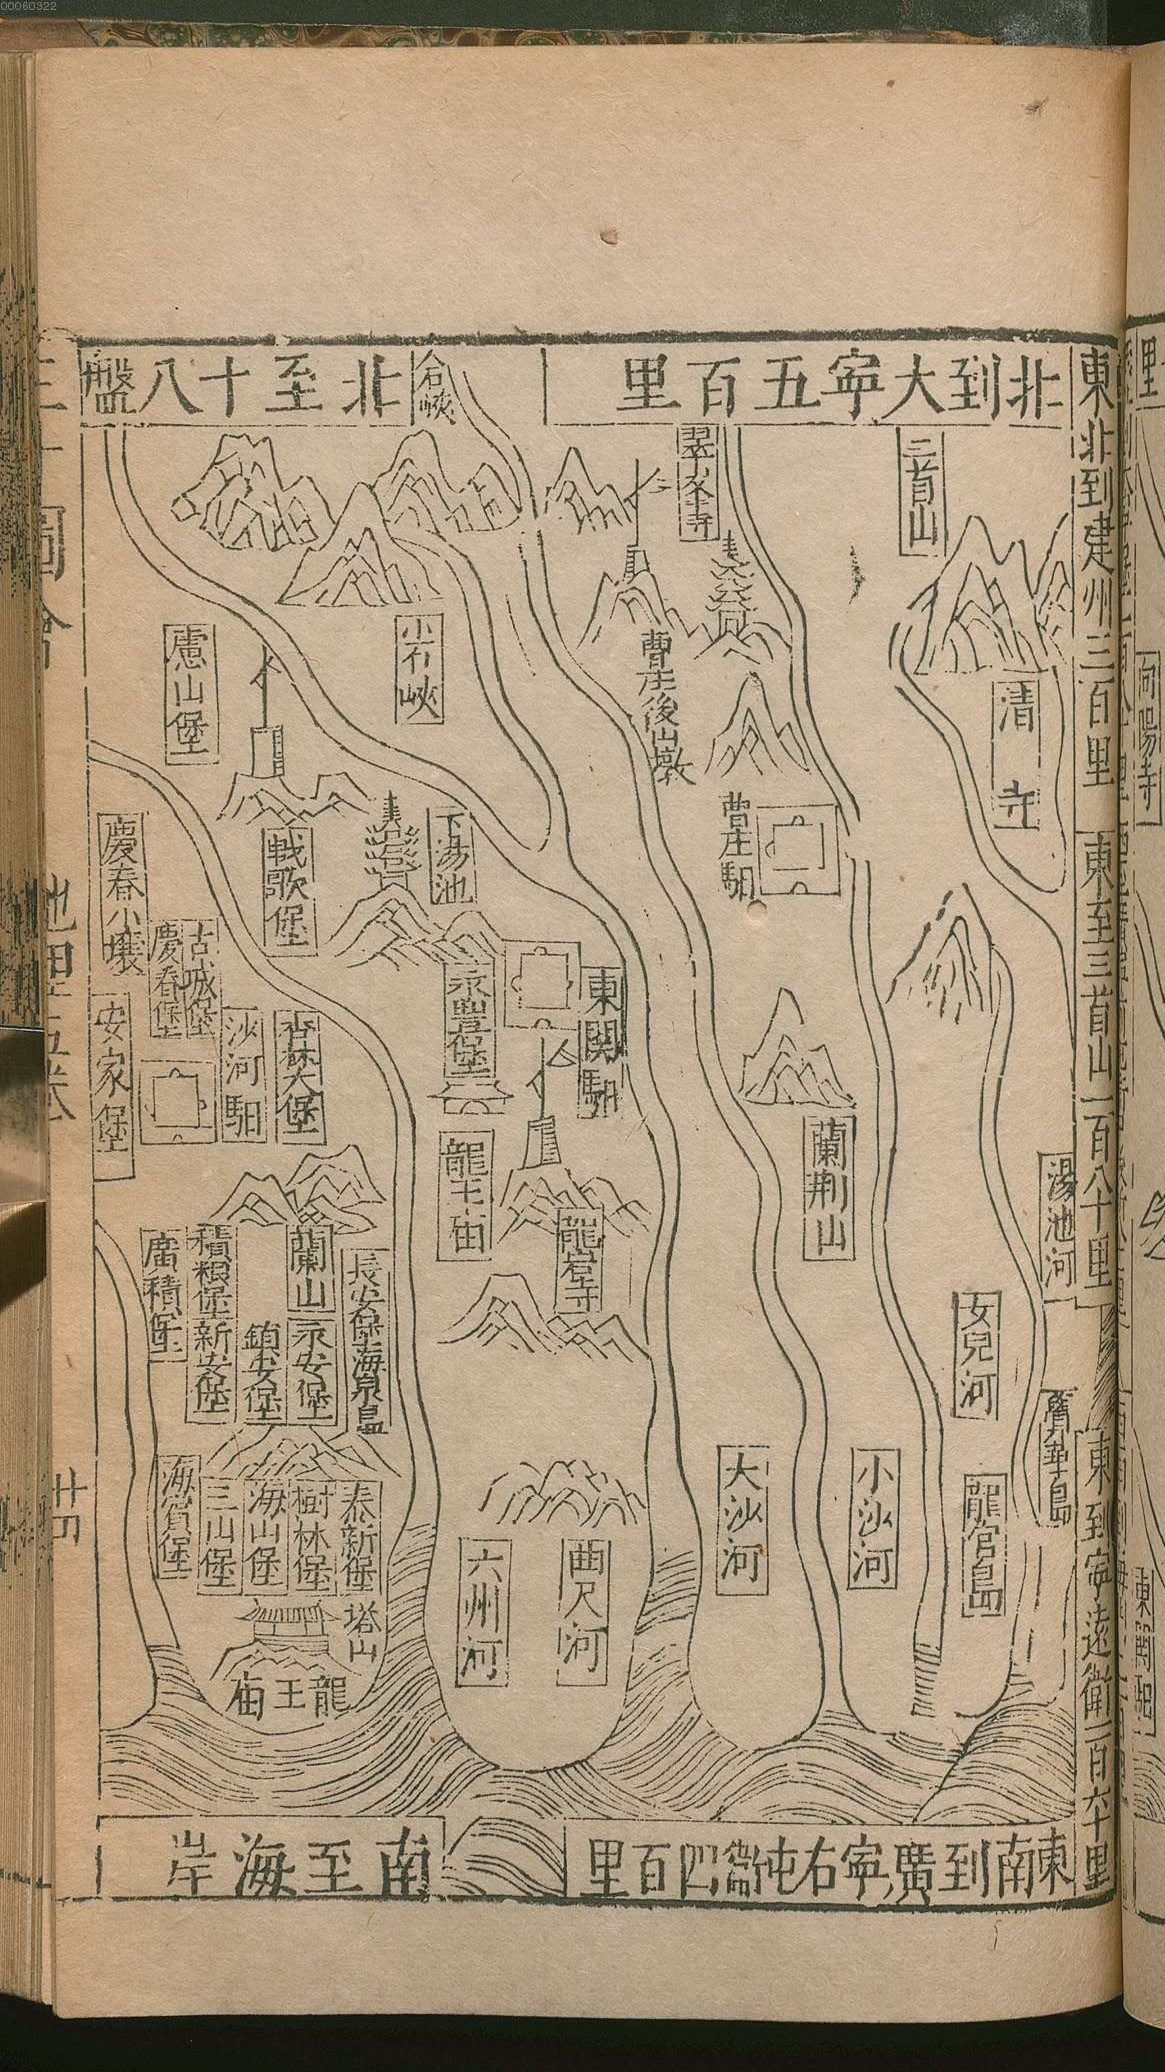 00060322
北到大寧五百里
北至十八盤
東北到建州三百里
東至三首山一百八十里
東到寧遠衛一百六十里
東南到廣寧右屯衛四百里
南至海岸
三首山
清 寺
湯池河
女兒河
龍宮島
小沙河
大沙河
蘭荆山
翠峯寺
曹庄後山墩
曹庄馹
石峽
小石峽
下湯池
永豊堡
東関馹
龍王庙
龍岩寺
曲尺河
六州河
戟歌堡
慶春小壤
慶春堡
古城堡
安家堡
沙河馹
杏林大堡
蘭山
長安堡海泉島
永安堡
鎮安堡
積粮堡
新安堡
廣積堡
泰新堡
樹林堡
海山堡
三山堡
海賓堡
塔山
龍王庙
向陽寺
東関馹